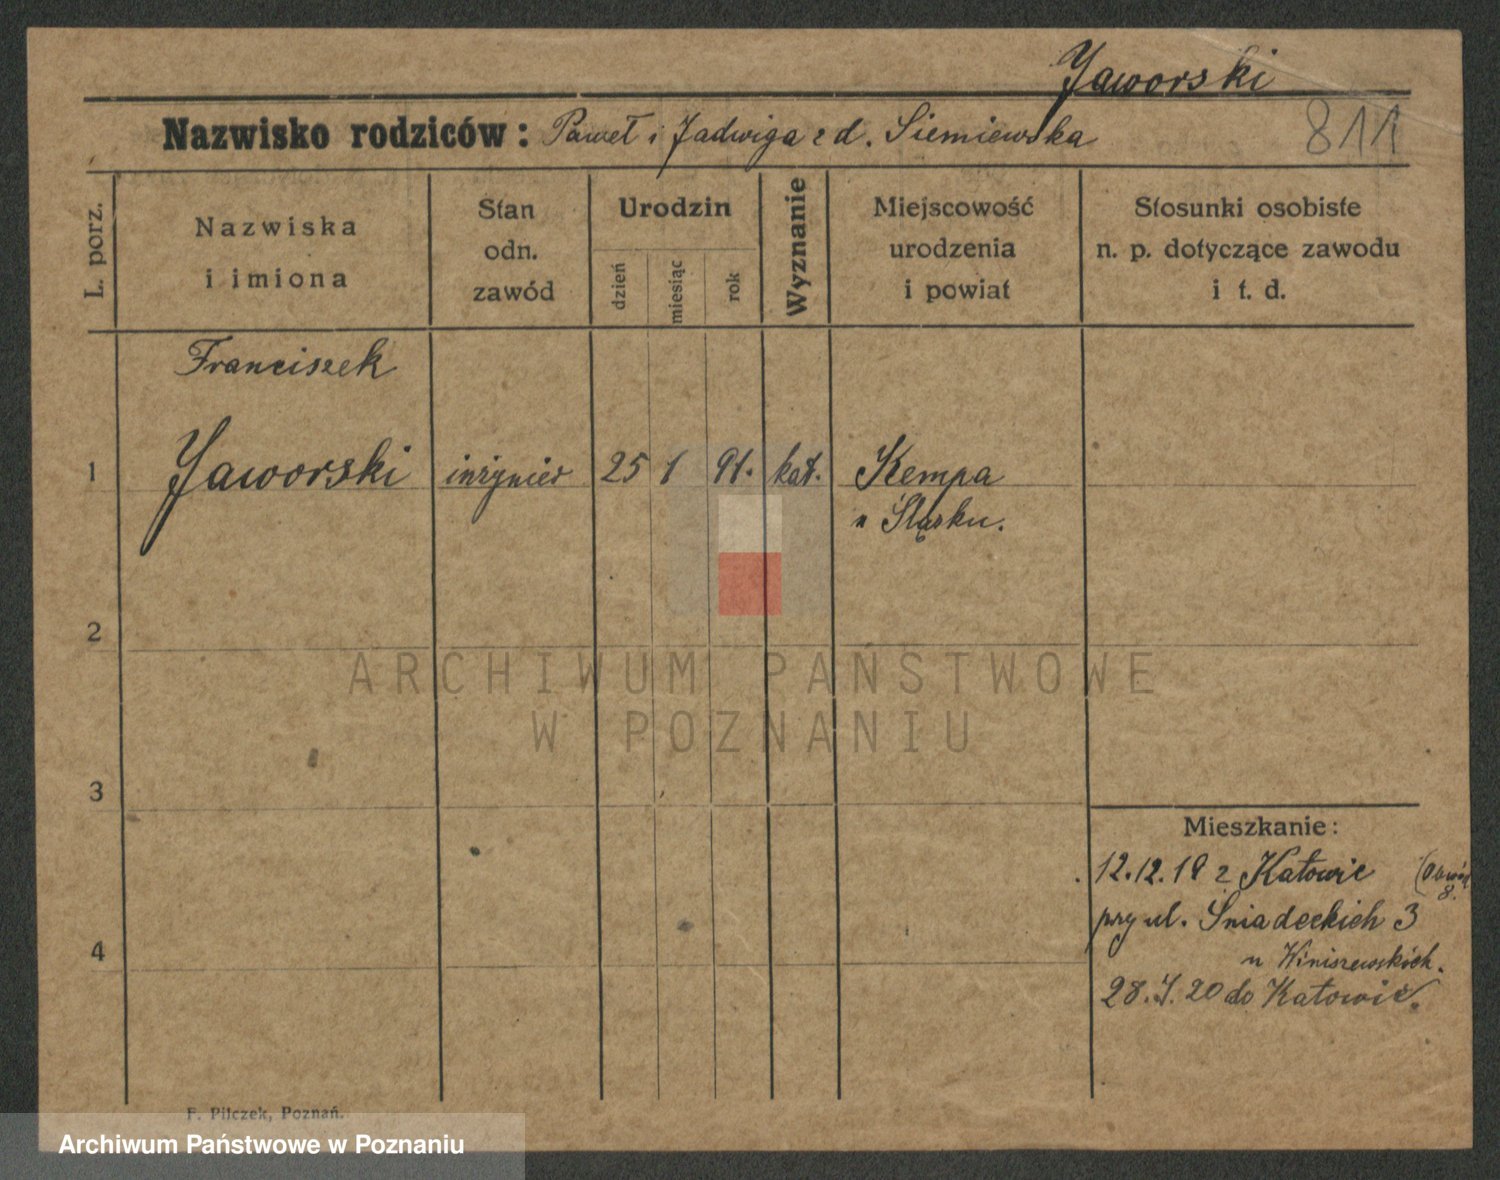 Jaworski
Nazwisko rodziców: Paweł i Jadwiga z d. Siemiewska
811
L. porz.
Nazwiska
i imiona
Stan
odn.
zawód
Urodzin
dzień
miesiąc
rok
Wyznanie
Miejscowość
urodzenia
i powiat
Stosunki osobiste
n. p. dotyczące zawodu
i t. d.
Franciszek
1 Jaworski inżynier 25 1 91. kat. Kempa
Śląsku.
2
3
4
Mieszkanie:
12.12.19 z Katowic
przy ul. Śniadeckich 3
u Winiszewskich.
28. I. 20 do Katowic.
F. Pilczek, Poznań.
ARCHIWUM PAŃSTWOWE
W POZNANIU
Archiwum Państwowe w Poznaniu